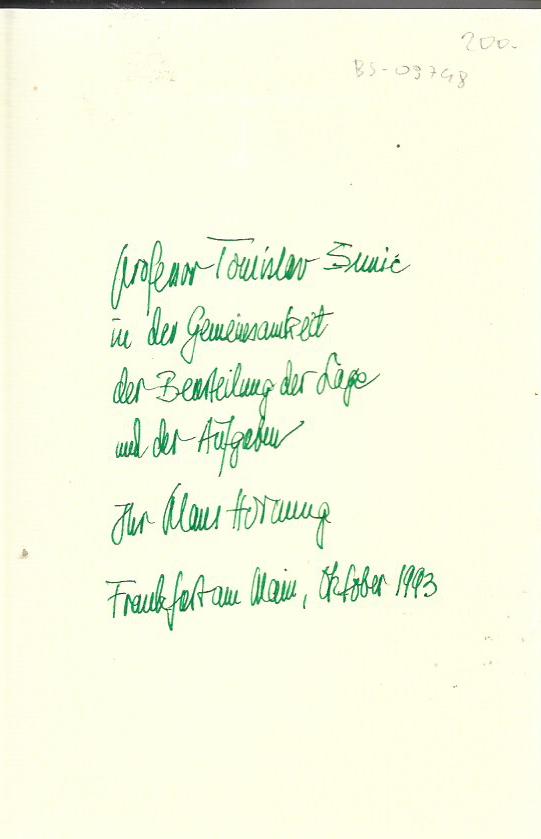 200.-
BS-09748
Professor Tomislav Sunic
in der Gemeinsamkeit
der Beurteilung der Lage
und der Aufgaben
Ihr Klaus Hornung
Frankfurt am Main, Oktober 1993